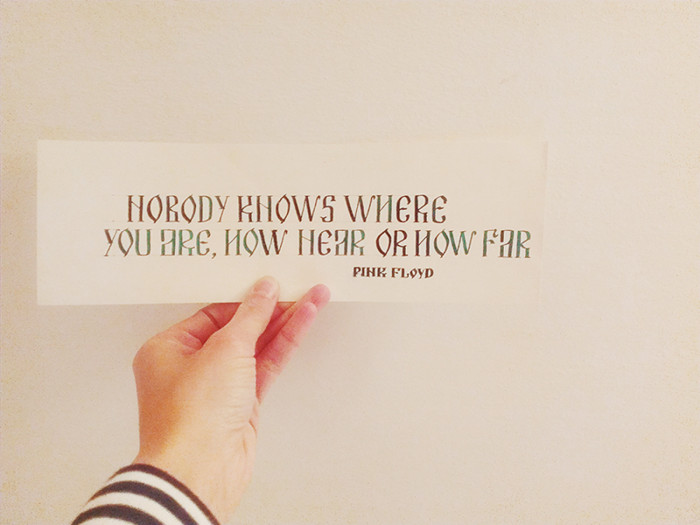 NOBODY KNOWS WHERE
YOU ARE, HOW NEAR OR HOW FAR
PINK FLOYD